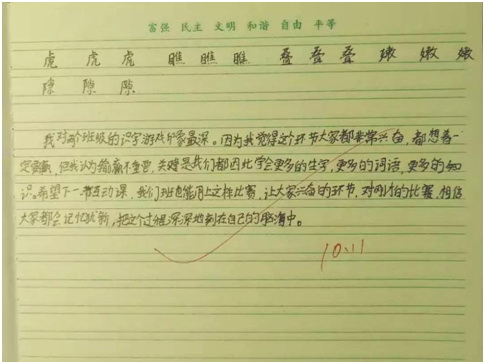 富强 民主 文明 和谐 自由 平等
虎 虎 虎 瞧 瞧 瞧 叠 叠 叠 嫩 嫩 嫩
隙 隙 隙
我对两个班级的识字游戏印象最深。因为我觉得这个环节大家都非常兴奋，都想着一
定要赢，但我认为输赢不重要，关键是我们都因此学会更多的生字，更多的词语，更多的知
识。希望下一节互动课，我们班也能用上这样比赛，让大家兴奋的环节，对刚才的比赛，相信
大家都会记忆犹新，把这个过程深深地刻在自己的脑海中。
10.11